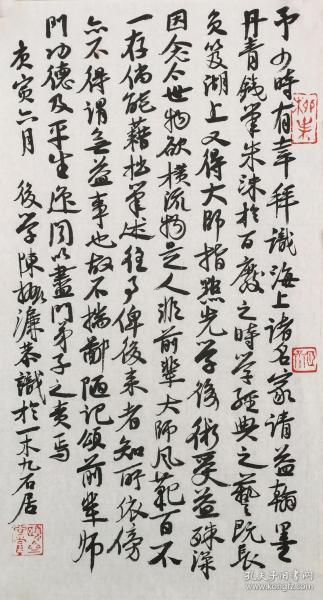 予少时有幸拜識海上諸名家請益翰墨
丹青鐵筆朱沫於百廢之時学經典之藝既長
負笈湖上又得大師指點光学後術受益殊深
因念今世物欲横流物是人非前輩大師风範百不
一存倘能藉拙筆述往事俾後来者知所依傍
亦不得謂無益事也故不揣鄙陋记頌前輩师
門功德及平生逸聞以盡門弟子之责焉
庚寅六月 後学陳 濂恭識於一木九石居
孔夫子旧书网